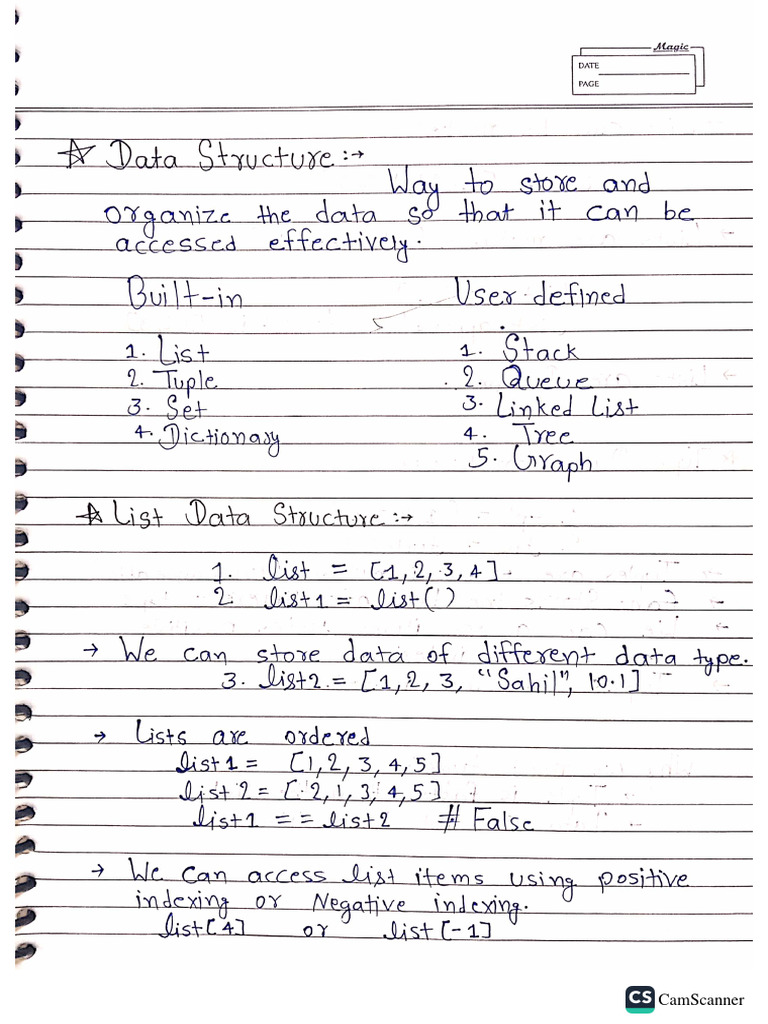 Magic
DATE
PAGE
☆ Data Structure :→
Way to store and
organize the data so that it can be
accessed effectively.
Built-in User defined
1. List 1. Stack
2. Tuple 2. Queue
3. Set 3. Linked List
4. Dictionary 4. Tree
5. Graph
☆ List Data Structure :→
1. list = [1, 2, 3, 4]
2. list1 = list()
→ We can store data of different data type.
3. list2 = [1, 2, 3, "Sahil", 10.1]
→ Lists are ordered
list1 = [1, 2, 3, 4, 5]
list2 = [2, 1, 3, 4, 5]
list1 == list2 # False
→ We can access list items using positive
indexing or Negative indexing.
list[4] or list[-1]
CS CamScanner